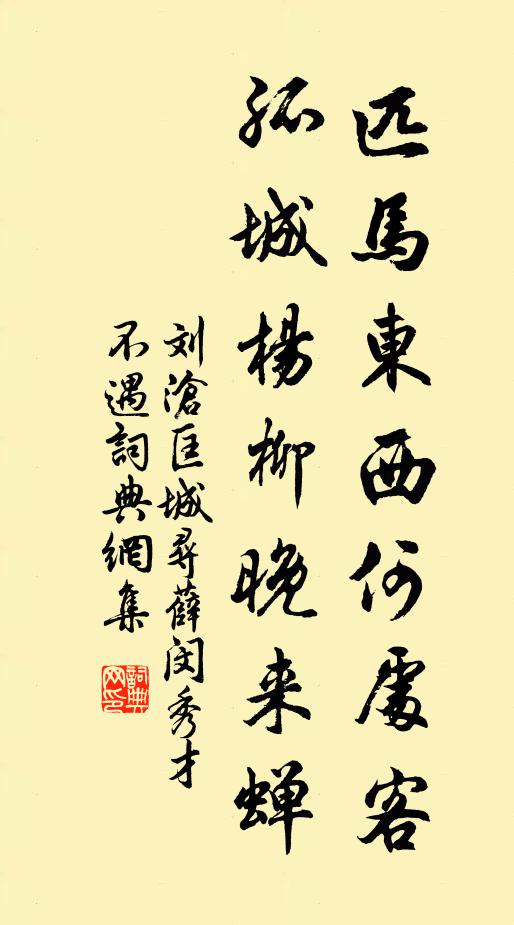 匹馬東西何處客
孤城楊柳晚来蝉
刘滄匡城尋薛閔秀才
不遇詞典網集
詞典
网印